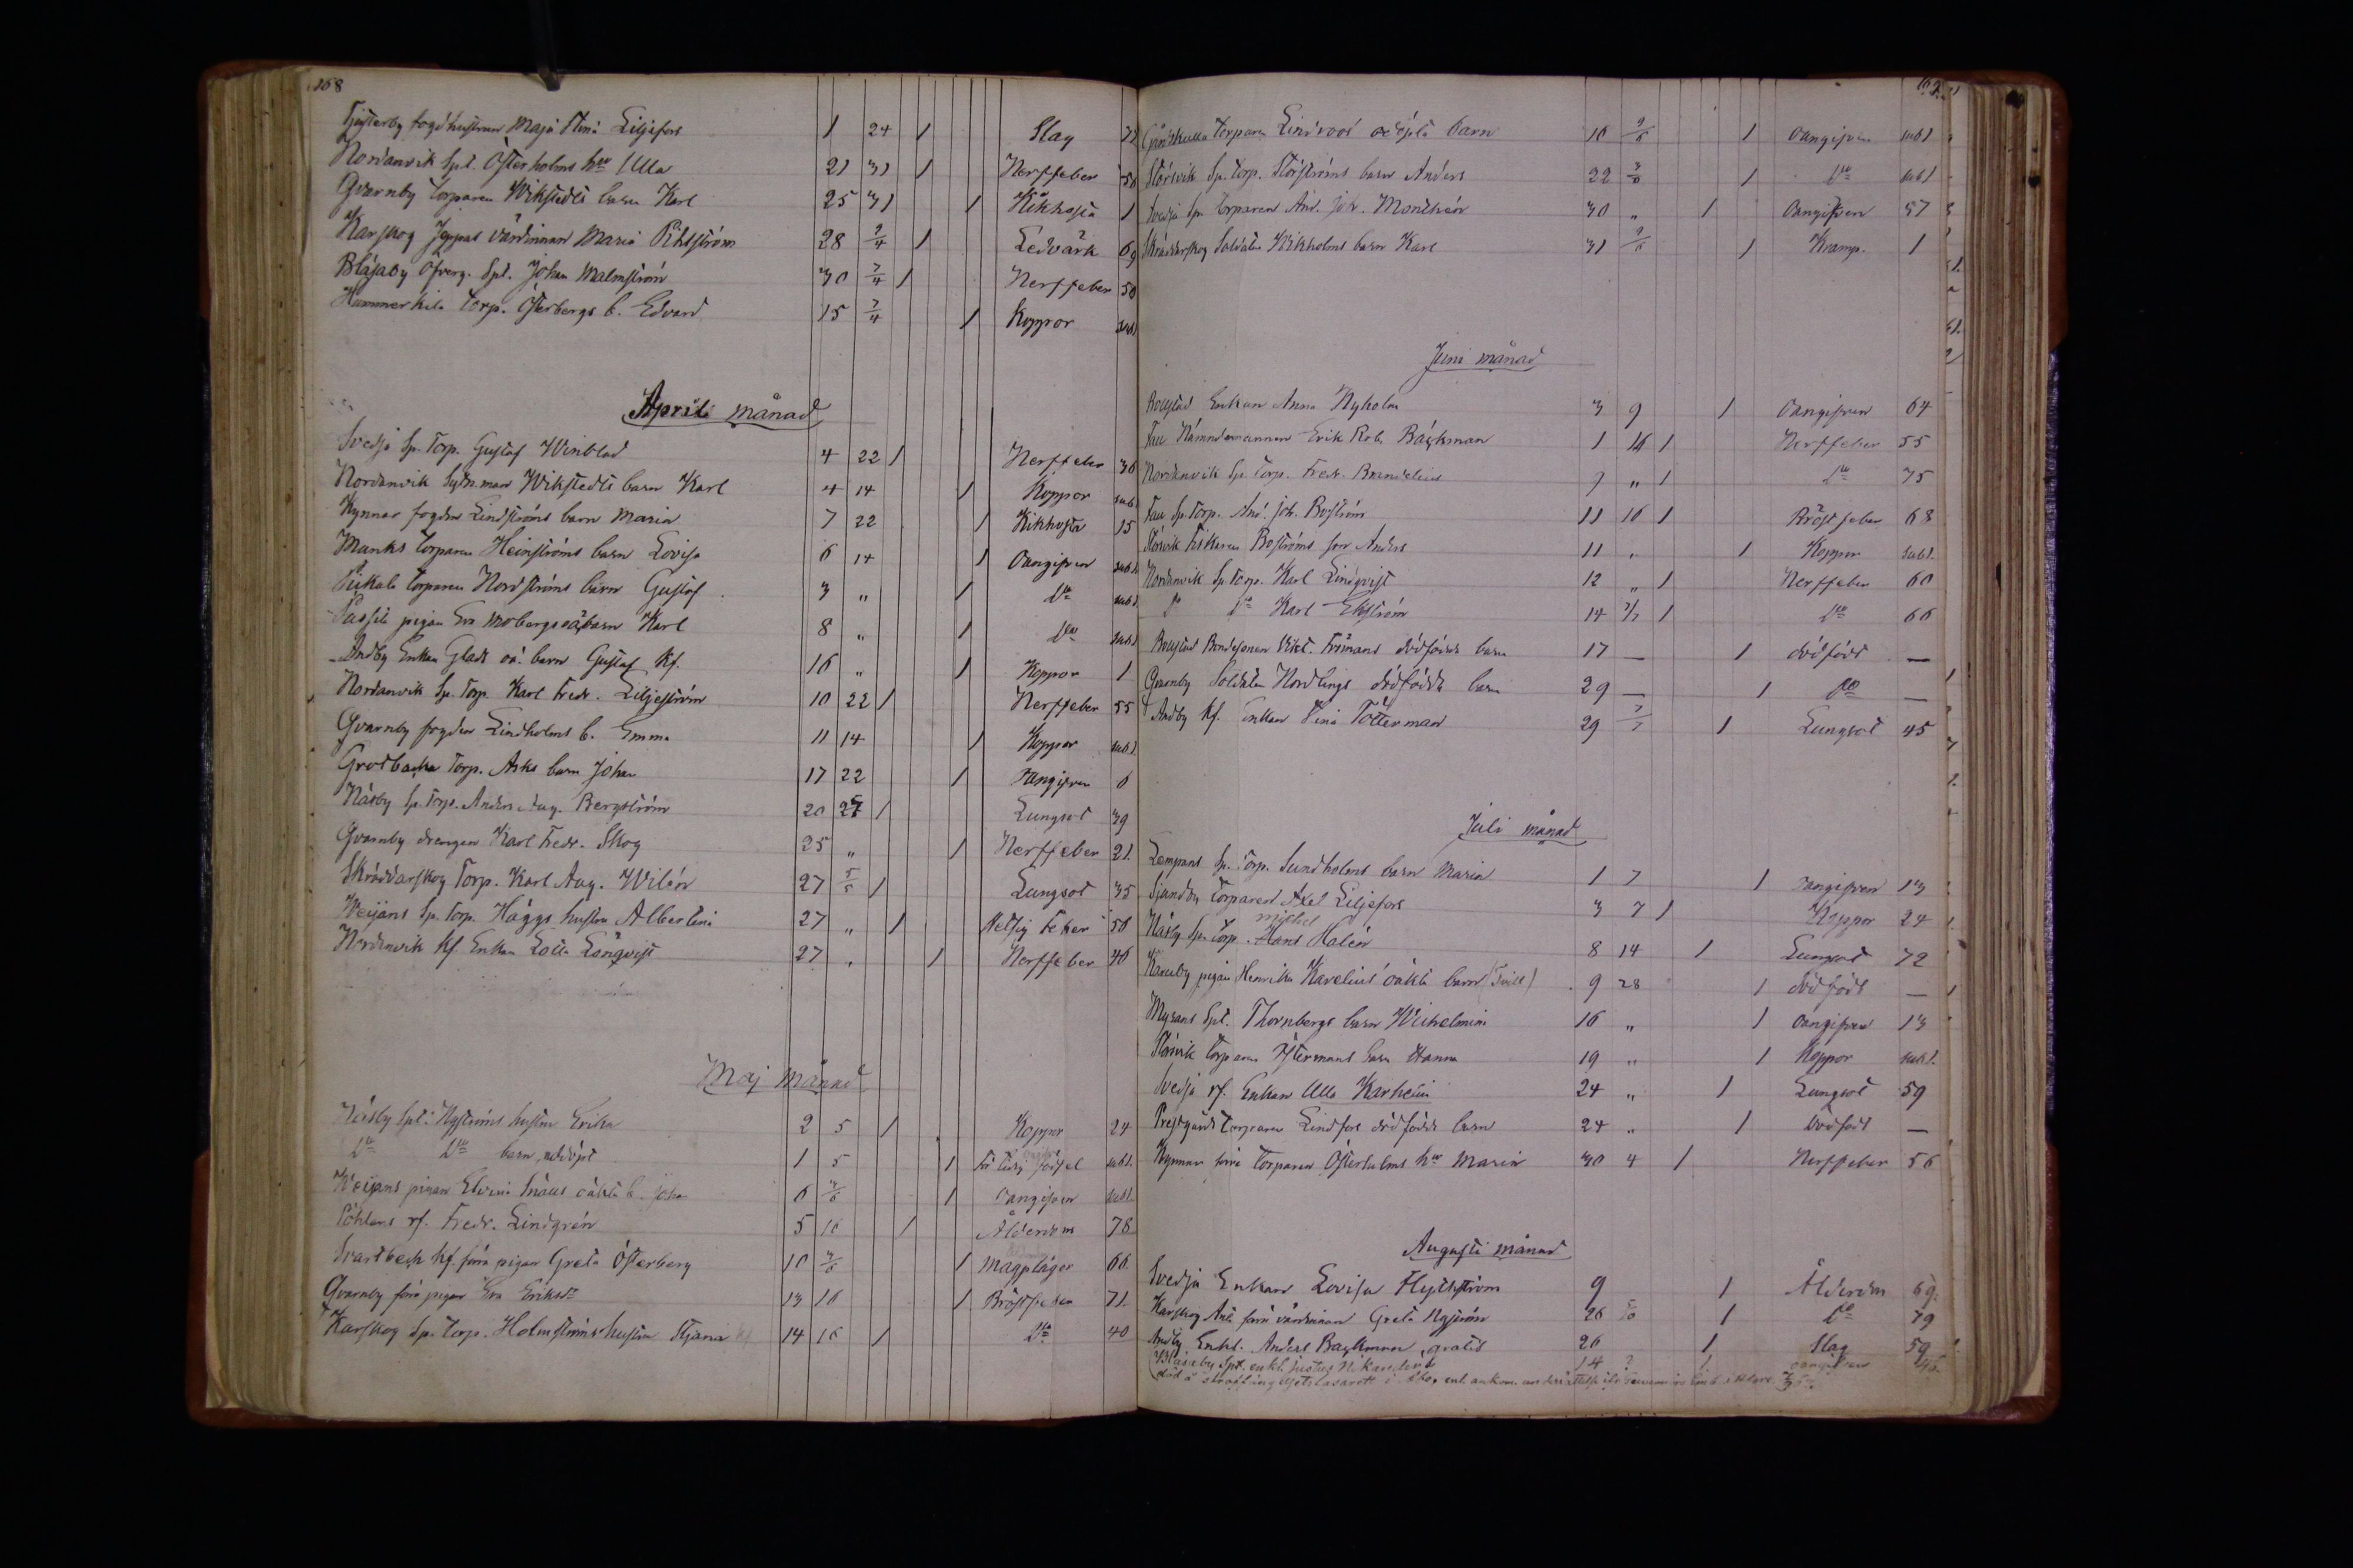 168
Gesterby fogdhustrun Maja Stina Liljefors 1 24 1 Slag 72
Nordanvik Spt. Österholms hu Ulla 21 31 1 Nerffeber 50
Qvarnby Torparen Wikstedts barn Karl 25 31 1 Kikhosta 1
Karskog Jeppas värdinnan Maria Pihlström 28 2/4 1 Ledvärk 69
Blåsaby Öfverg. Spt. Johan Malmström 30 7/4 1 Nerffeber 50
Hammerkila Torp. Österbergs b. Edvard 15 7/4 1 Koppor
Aprili månad
Svedja Sp. Torp. Gustaf Winblad 4 22 1 Nerffeber 36
Nordanvik Wikstedts barn Karl 4 14 1 Koppor
Kynnar fogden Lindströms barn Maria 7 22 1 Kikhosta 15
Munks Torparen Heinströms barn Lovisa 6 14 1 Oangifven
Pickala Torparen Nordströms barn Gustaf 3 „ 1 Do
Passila pigan Eva Mobergs oä barn Karl 8 „ 1 Do
Andby Enkan Glads oä. barn Gustaf Kf. 16 „ 1 Koppor 1
Nordanvik Sp. Torp. Karl Fredr. Liljeström 10 22 1 Nerffeber 55
Qvarnby fogden Lindholms b. Emma 11 14 1 Koppor
Grotbacka Torp. Asks barn Johan 17 22 1 Oangifven 6
Näsby Sp. Torp. Anders Aug. Bergström 20 27 1 Lungsot 39
Qvarnby drengen Karl Fredr. Skog 25 „ 1 Nerffeber 21
Skräddarskog Torp. Karl Aug. Wilén 27 5/5 1 Lungsot 35
Weijans Sp. Torp. Häggs hustru Albertina 27 „ 1 Hetsig Feber 50
Nordanvik Kf. Enkan Lotta Lönqvist 27 „ 1 Nerffeber 46
Maj månad
Näsby Spt. Nyströms hustru Erika 2 5 1 Koppor 24
Do Do barn, nöddöpt 1 5 1 För tidig födsel
Weijans pigan Elvira oäkta b. Johan 6 3/6 1 Oangifven
Pöhlans rf. Fredr. Lindgrén 5 16 1 Ålderdom 78
Svartbeck Kf. förra pigan Greta Österberg 10 3/6 1 Magplågor 66
Qvarnby förra pigan Eva Eriksdr 13 16 1 Bröstfeber 71
Karskog Sp. Torp. Holmströms hustru Stjana 14 16 1 Do 40
Torparen Lindroos odöpta barn 10 9/6 1 Oangifven
Störsvik Sp. Torp. Störströms barn Anders 22 3/6 1 Do
Svedja Sp. Torparen And. Joh. Montheén 30 „ 1 Oangifven 57
Skräddarskog Soldaten Wikholms barn Karl 31 9/6 1 Kramp. 1
Juni månad
Bollstad Enkan Anna Nyholm 3 9 1 Oangifven 64
Fau Nämndemannen Erik Rob. Bäckman 1 16 1 Nerffeber 55
Nordanvik Sp. Torp. Fredr. Brandelius 9 „ 1 Do 75
Fau Sp. Torp. And. Joh. Boström 11 16 1 Bröstfeber 68
Störsvik Fiskaren Boströms son Anders 11 „ 1 Koppor
Nordanvik Sp. Torp. Karl Lindqvist 12 „ 1 Nerffeber 60
Do Do Karl Ekström 14 7/7 1 Do 66
Bollstad Bondesonen Vikt. Frömans dödfödda barn 17 — 1 dödfödt —
Qvarnby Soldaten Nordlings dödfödda barn 29 — 1 Do —
Andby Kf. Enkan Stina Tötterman 29 7/7 1 Lungsot 45
Juli månad
Lempans Sp. Torp. Sundholms barn Maria 1 7 1 Oangifven 13
Sjundby Torparen Axel Liljefors 3 7 1 Koppor 24
Michel
Näsby Sp. Torp. Hans Halén 8 14 1 Lungsot 72
Karuby pigan Henrika Karelius' oäkta barn (Tvill) 9 28 1 dödfödt —
Myrans Spt. Thornbergs barn Wilhelmina 16 „ 1 Oangifven 13
Störsvik Torparen Östermans barn Hanna 19 „ 1 Koppor
Svedja rf. Enkan Ulla Karhein 24 „ 1 Lungsot 59
Prestgårds Torparen Lindfors dödfödda barn 24 „ 1 Dödfödt —
Kynnar förra Torparen Österholms hu Maria 30 4 1 Nerffeber 56
Augusti månad
Svedja Enkan Lovisa Flythström 9 1 Ålderdom 69
Karskog Ants förra värdinnan Greta Nyström 26 1 Do 79
Andby Enkl. Anders Backman, gratis 26 1 Slag 59
Blåsaby Spt. enkl. Justus N. 14 ? 1 oangifven